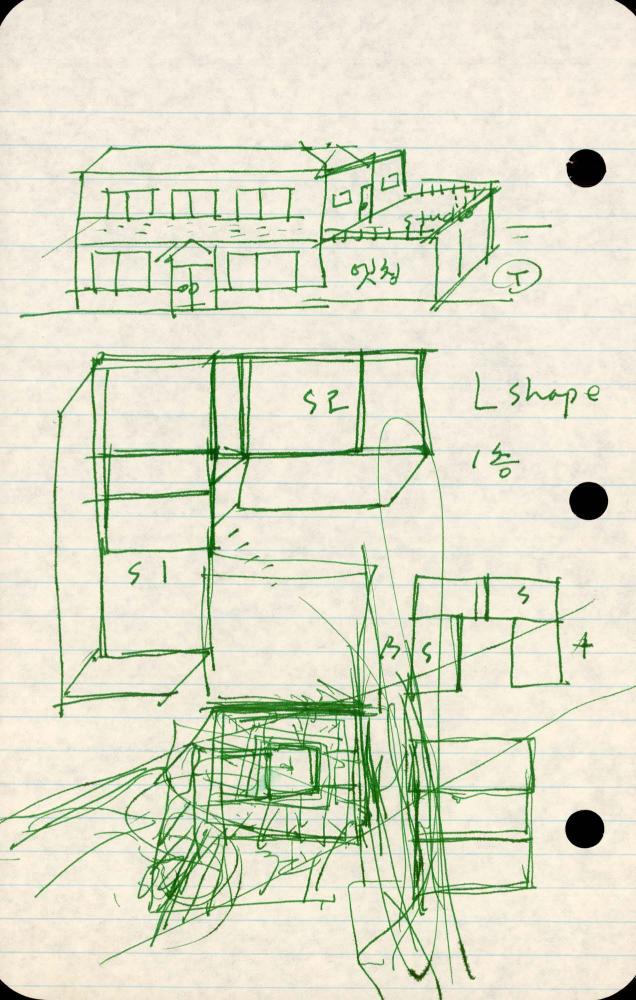 studio
S2
L shape
1층
S1
S
B
S
A